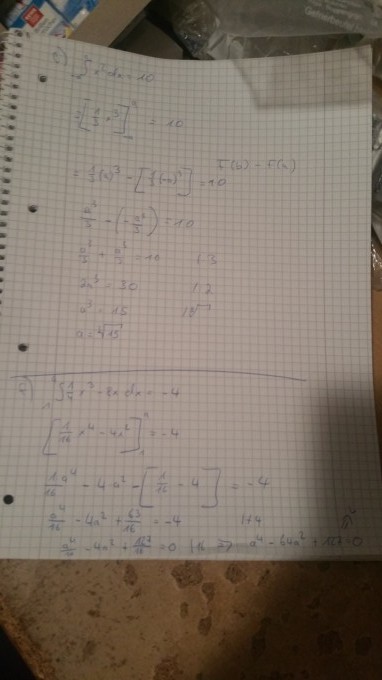 ∫ x² dx = 10
= [1/3 x³] = 10
F(b) - F(a)
= 1/3 (a)³ - [1/3 (-a)³] = 10
a³/3 - (-a³/3) = 10
a³/3 + a³/3 = 10 | · 3
2a³ = 30 | : 2
a³ = 15 | ³√
a = ³√15
∫ 1/4 x³ - 8x dx = -4
[1/16 x⁴ - 4x²] = -4
1/16 a⁴ - 4a² - [1/16 - 4] = -4
a⁴/16 - 4a² + 63/16 = -4 | +4
a⁴/16 - 4a² + 127/16 = 0 | 16 => a⁴ - 64a² + 127 = 0